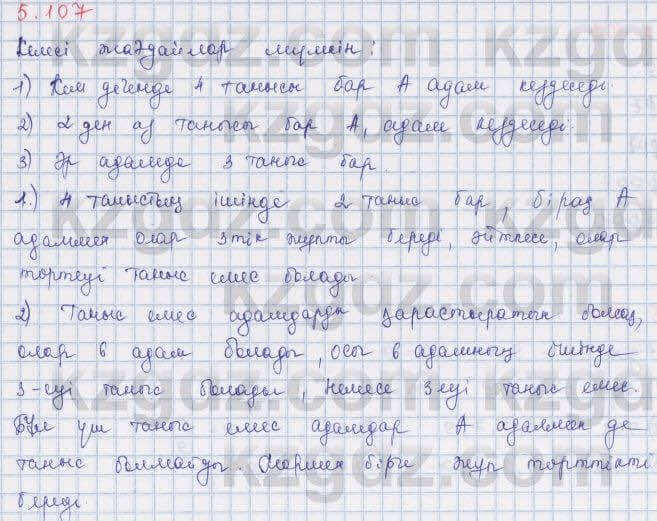 5.107
Келесі жағдайлар мүмкін:
1) Кем дегенде 4 танысы бар А адам кездеседі.
2) 2 ден аз танысы бар А, адам кездеседі.
3) Әр адамда 3 таныс бар.
1.) 4 таныстың ішінде 2 таныс бар, бірақ А
адаммен олар үштік жұпты береді, әйтпесе, олар
төртеуі таныс емес болады.
2) Таныс емес адамдарды қарастыратын болсақ,
олар 6 адам болады, осы 6 адамның ішінде
3-еуі таныс болады, немесе 3еуі таныс емес.
Бұл үш таныс емес адамдар А адаммен де
таныс болмайды. Олармен бірге жұп төрттікті
береді.
kzgdz.com